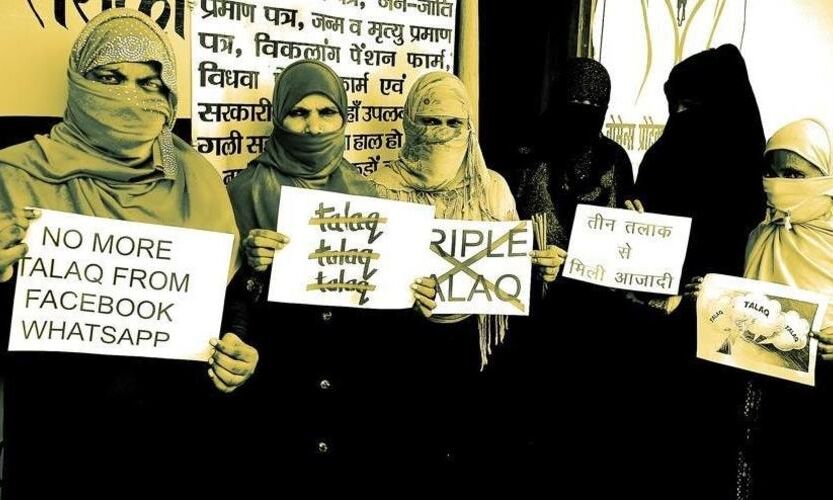 प्रमाण पत्र, जन्म व मृत्यु प्रमाण
पत्र, विकलांग पेंशन फार्म,
विधवा फार्म एवं
सरकारी
गली
NO MORE
TALAQ FROM
FACEBOOK
WHATSAPP
talaq
talaq
talaq
RIPLE
ALAQ
तीन तलाक
से
मिली आजादी
TALAQ
TALAQ
TALAQ